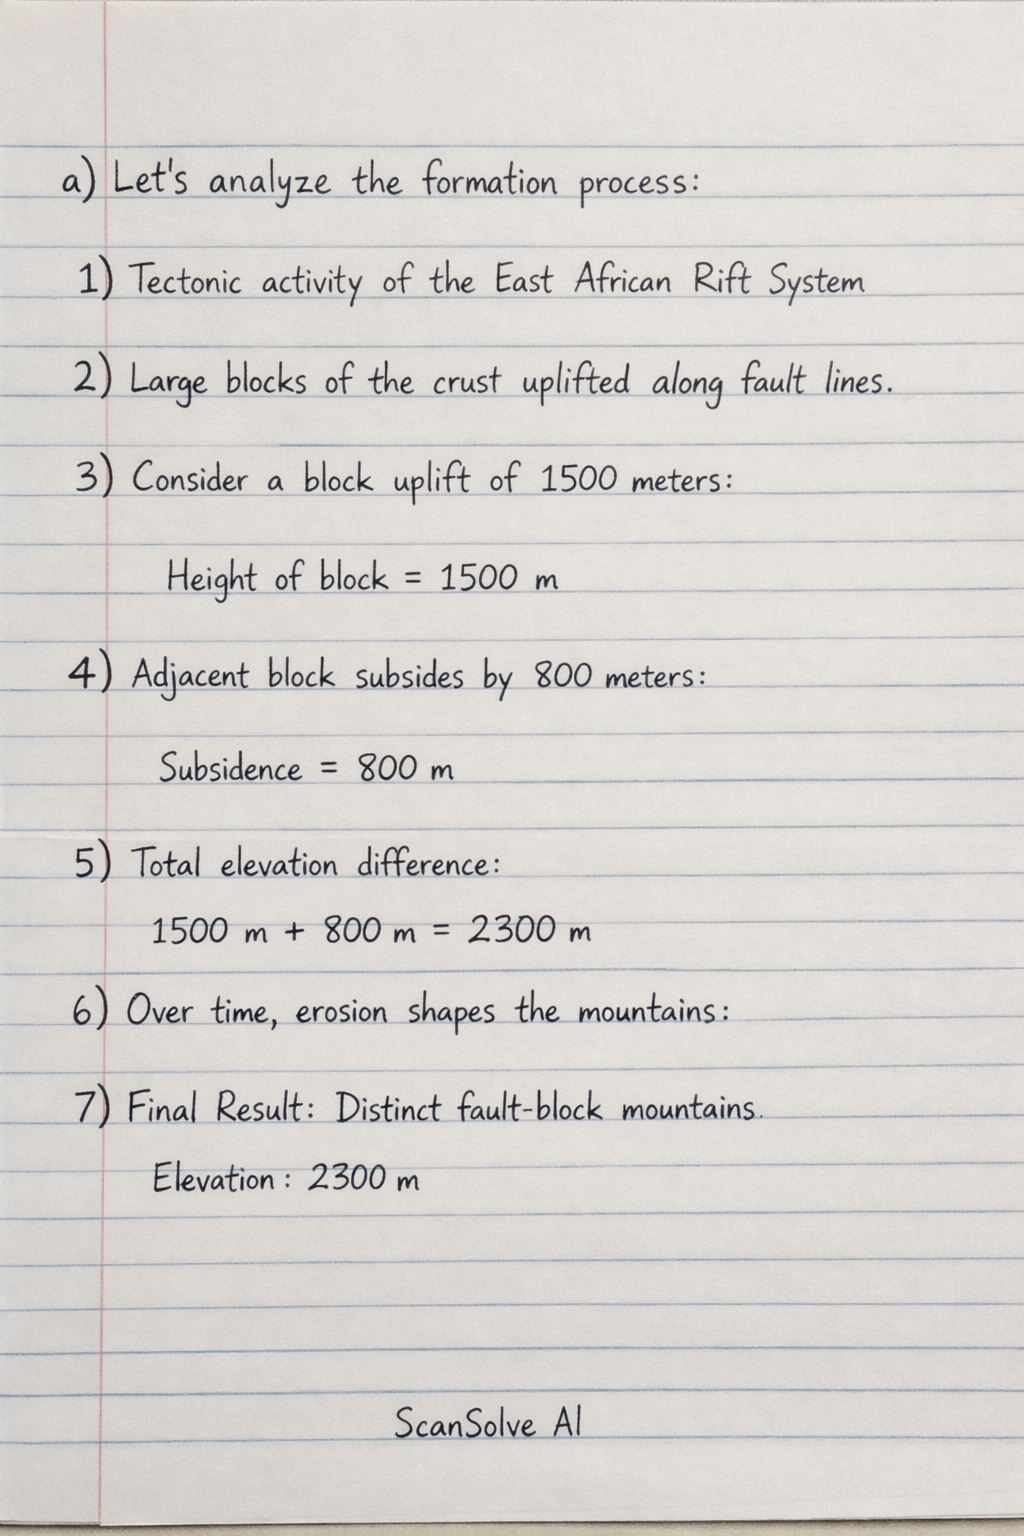 a) Let's analyze the formation process:
1) Tectonic activity of the East African Rift System
2) Large blocks of the crust uplifted along fault lines.
3) Consider a block uplift of 1500 meters:
Height of block = 1500 m
4) Adjacent block subsides by 800 meters:
Subsidence = 800 m
5) Total elevation difference:
1500 m + 800 m = 2300 m
6) Over time, erosion shapes the mountains:
7) Final Result: Distinct fault-block mountains.
Elevation: 2300 m
ScanSolve AI